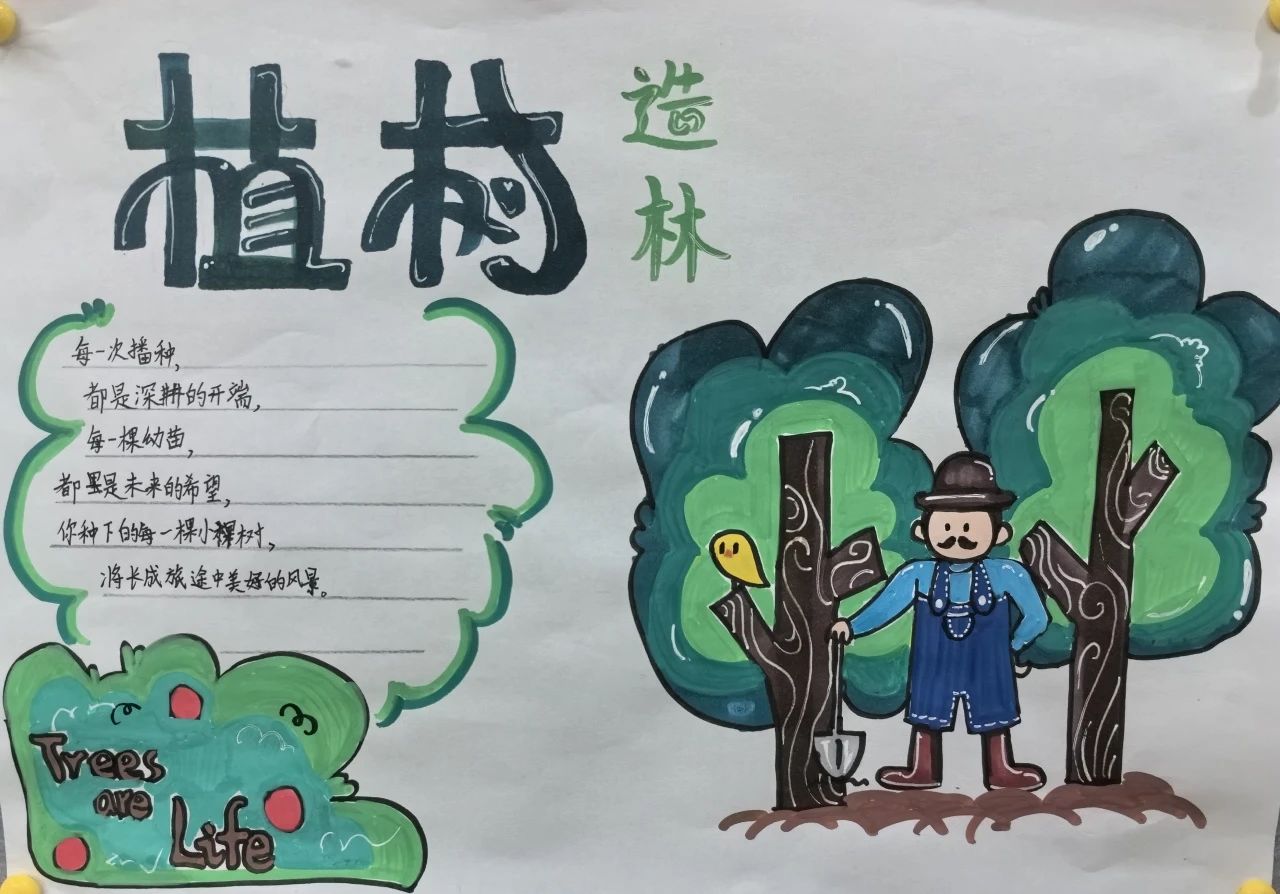 植树
造
林
每一次播种，
都是深耕的开端，
每一棵幼苗，
都是未来的希望，
你种下的每一棵小树，
将长成旅途中美好的风景。
Trees
are
Life